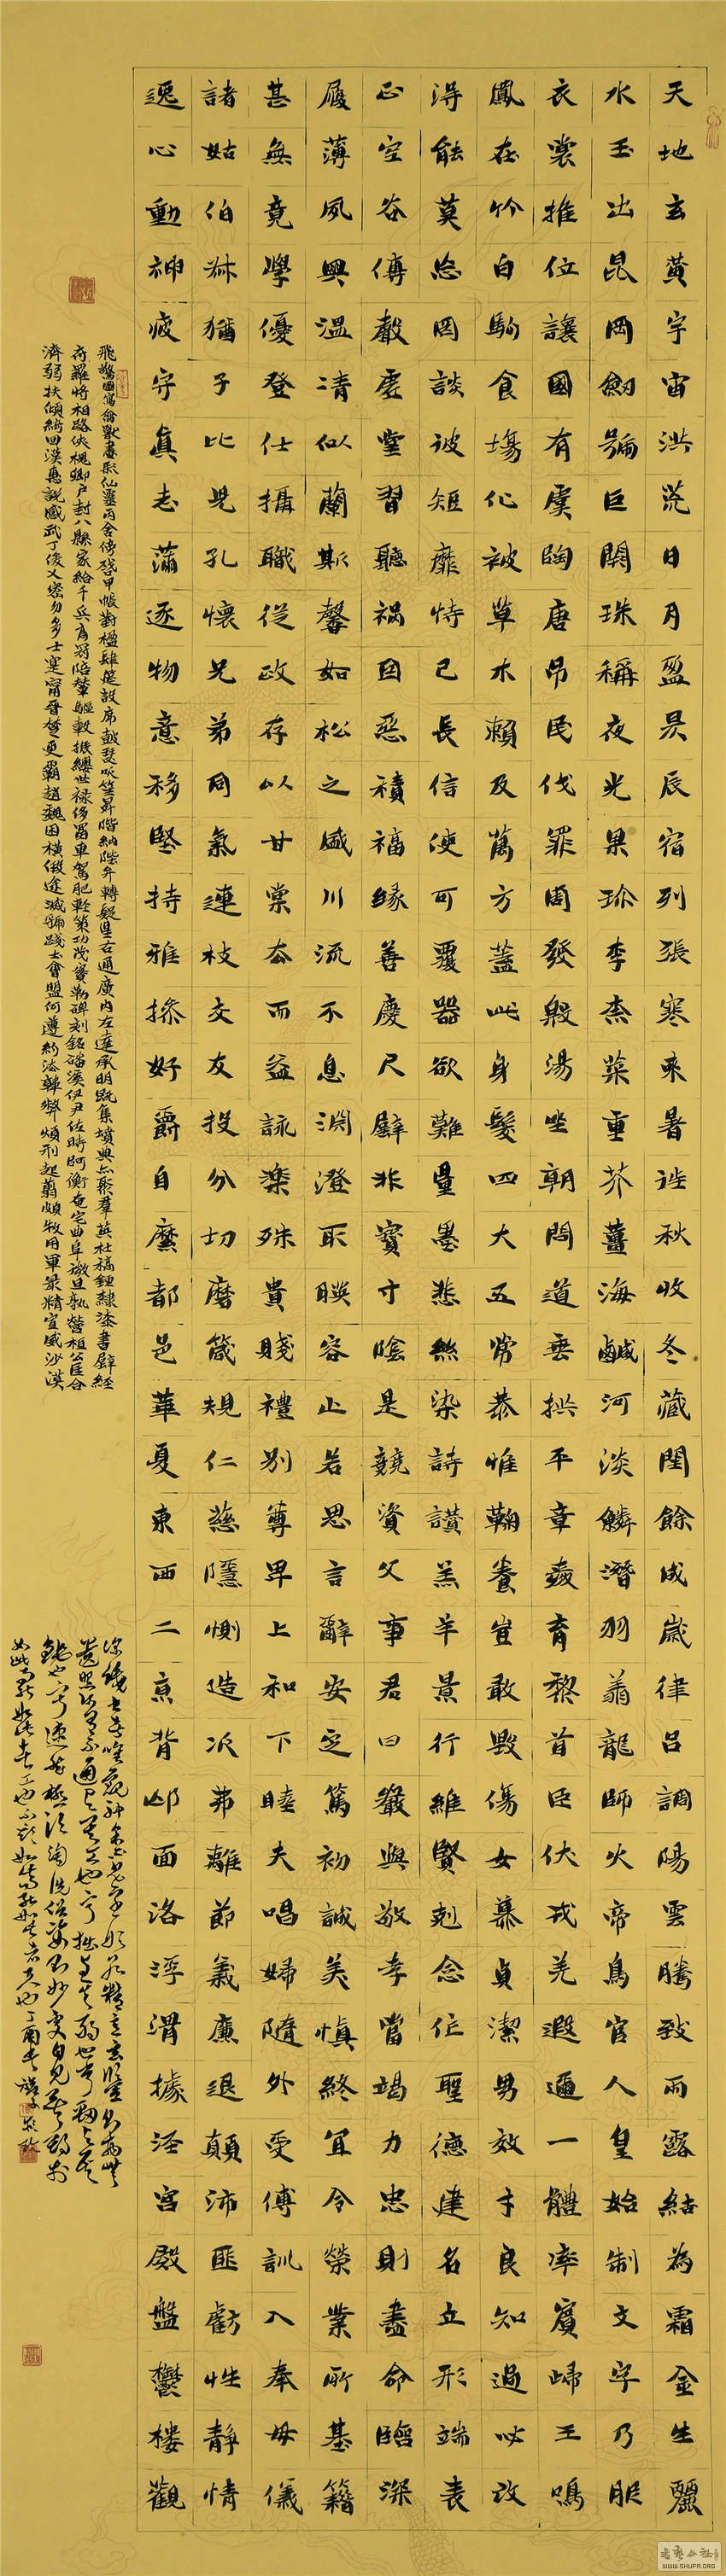 天地玄黃宇宙洪荒日月盈昃辰宿列張寒來暑往秋收冬藏閏餘成歲律呂調陽雲騰致雨露結為霜金生麗
水玉出昆岡劒號巨闕珠稱夜光果珍李柰菜重芥薑海鹹河淡鱗潛羽翔龍師火帝鳥官人皇始制文字乃服
衣裳推位讓國有虞陶唐吊民伐罪周發殷湯坐朝問道垂拱平章愛育黎首臣伏戎羌遐邇一體率賓歸王鳴
鳳在竹白駒食場化被草木賴及萬方蓋此身髮四大五常恭惟鞠養豈敢毀傷女慕貞潔男效才良知過必改
得能莫忘罔談彼短靡恃己長信使可覆器欲難量墨悲絲染詩讚羔羊景行維賢剋念作聖德建名立形端表
正空谷傳聲虛堂習聽禍因惡積福緣善慶尺璧非寶寸陰是競資父事君曰嚴與敬孝當竭力忠則盡命臨深
履薄夙興溫清似蘭斯馨如松之盛川流不息淵澄取映容止若思言辭安定篤初誠美慎終宜令榮業所基籍
甚無竟學優登仕攝職從政存以甘棠去而益詠樂殊貴賤禮別尊卑上和下睦夫唱婦隨外受傅訓入奉母儀
諸姑伯叔猶子比兒孔懷兄弟同氣連枝交友投分切磨箴規仁慈隱惻造次弗離節義廉退顛沛匪虧性靜情
逸心動神疲守真志滿逐物意移堅持雅操好爵自縻都邑華夏東西二京背邙面洛浮渭據涇宮殿盤鬱樓觀
飛驚圖寫禽獸畫彩仙靈丙舍傍啓甲帳對楹肆筵設席鼓瑟吹笙昇階納陛弁轉疑星右通廣內左達承明既集墳典亦聚羣英杜稿鍾隸漆書壁經
府羅將相路俠槐卿戶封八縣家給千兵高冠陪輦驅轂振纓世祿侈富車駕肥輕策功茂實勒碑刻銘磻溪伊尹佐時阿衡奄宅曲阜微旦孰營桓公匡合
濟弱扶傾綺回漢惠說感武丁俊乂密勿多士寔甯晉楚更霸趙魏困橫假途滅虢踐土會盟何遵約法韓弊煩刑起翦頗牧用軍最精宣威沙漠
WWW.SHUFA.ORG